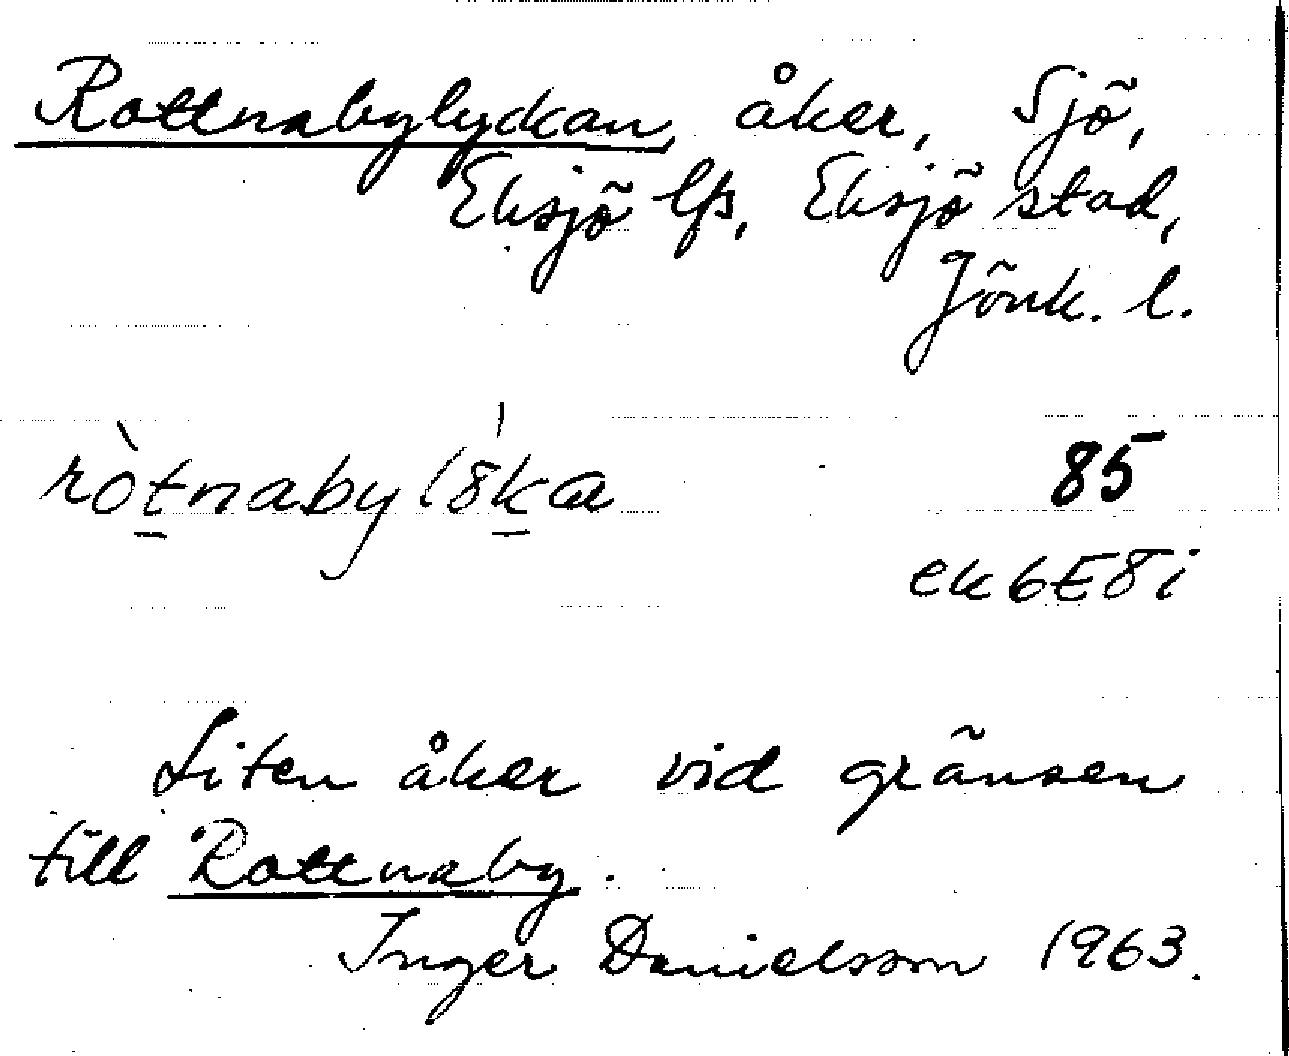 Rottnabylyckan, åker, Sjö,
Eksjö lfs, Eksjö stad,
Jönk. l.
ròtnabyl8́ka
85
ek6E8i
Liten åker vid gränsen
till Rottnaby.
Inger Danielsson 1963.